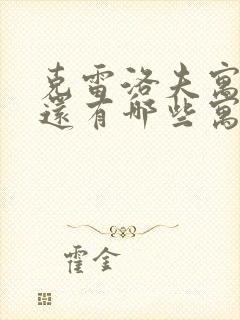 克雷洛夫寓
還有哪些寓
霍金